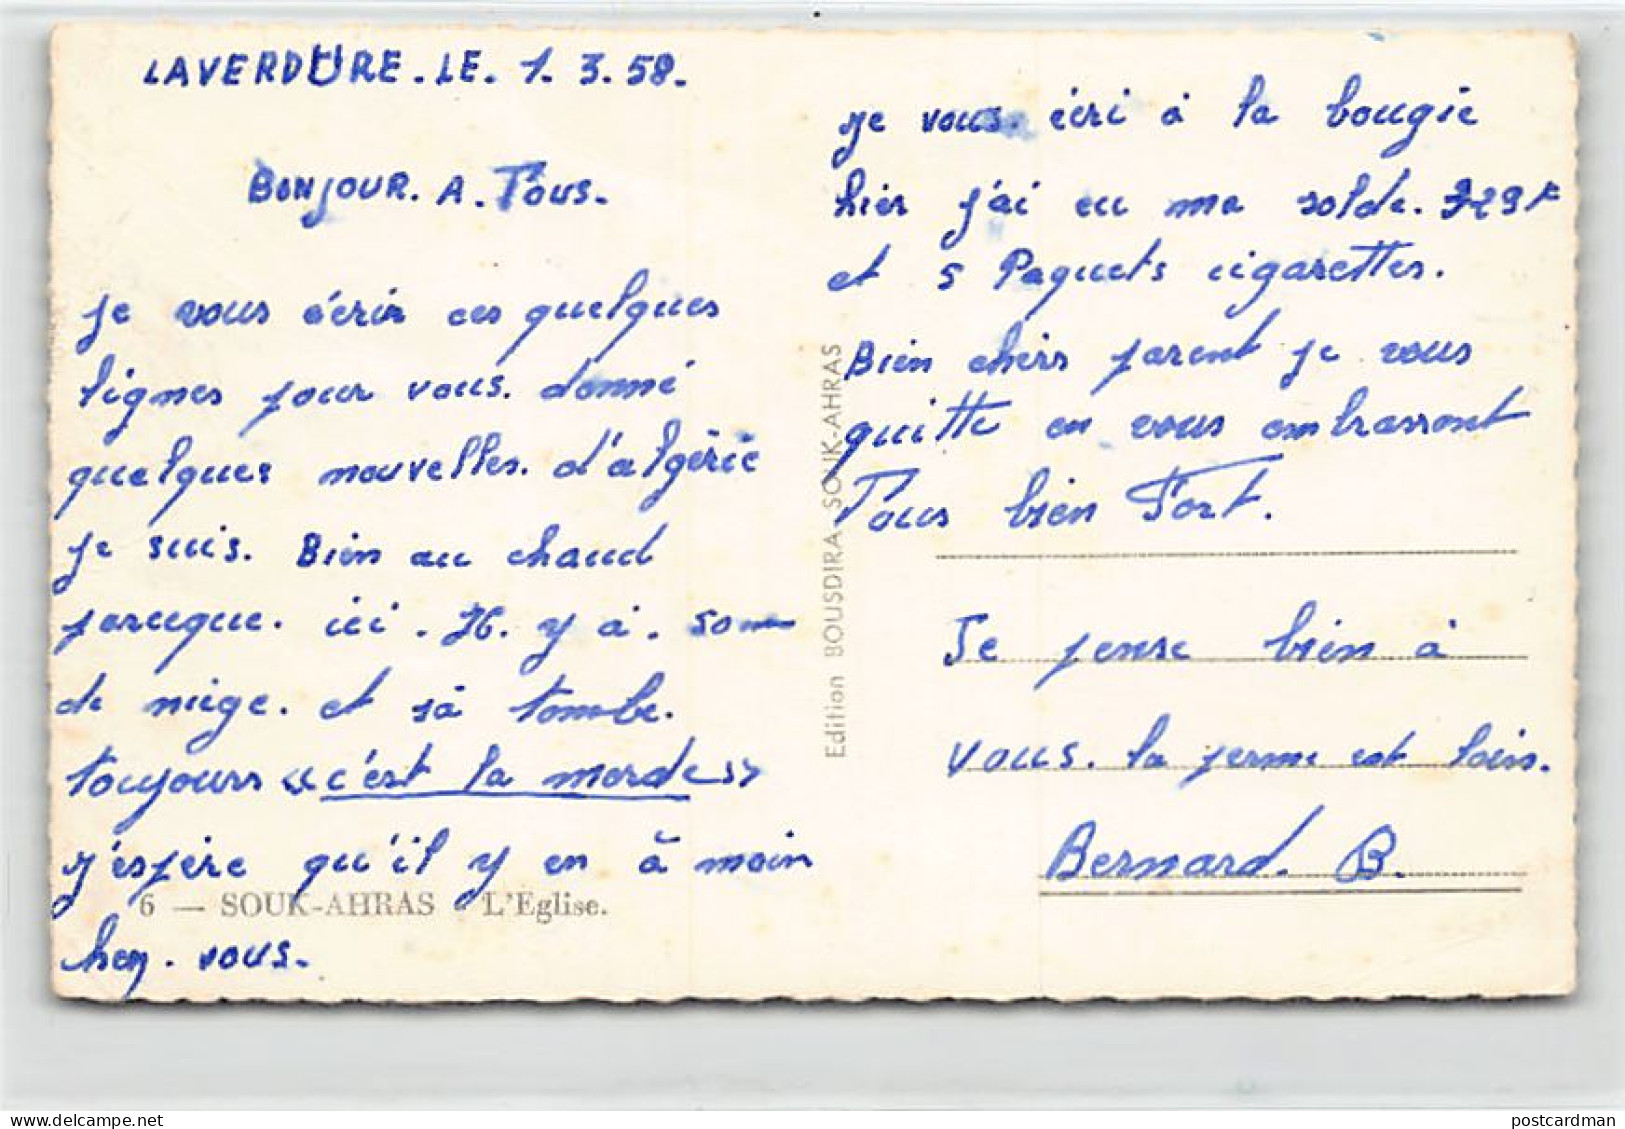 LAVERDURE. LE. 1. 3. 58.
BONJOUR. A. Tous.
je vous écrir ces quelques
lignes pour vous. donné
quelques nouvelles. d'algérie
je suis. Bien au chaud
paruque. ici. Il. y à. 50 cm
de neige. et sà tombe.
toujours « c'est la merde »
j'espère qu'il y en à moin
hez. vous.
6 — SOUK-AHRAS - L'Eglise.
Edition BOUSDIRA - SOUK-AHRAS
je vous. écri à la bougie
hier j'ai eu ma solde. 329F
et 5 Paquets cigarettes.
Bien chers parent je vous
quitte en vous embrassont
Tous bien Fort.
Je pense bien à
vous. la ferme est loin.
Bernard. B.
postcardman